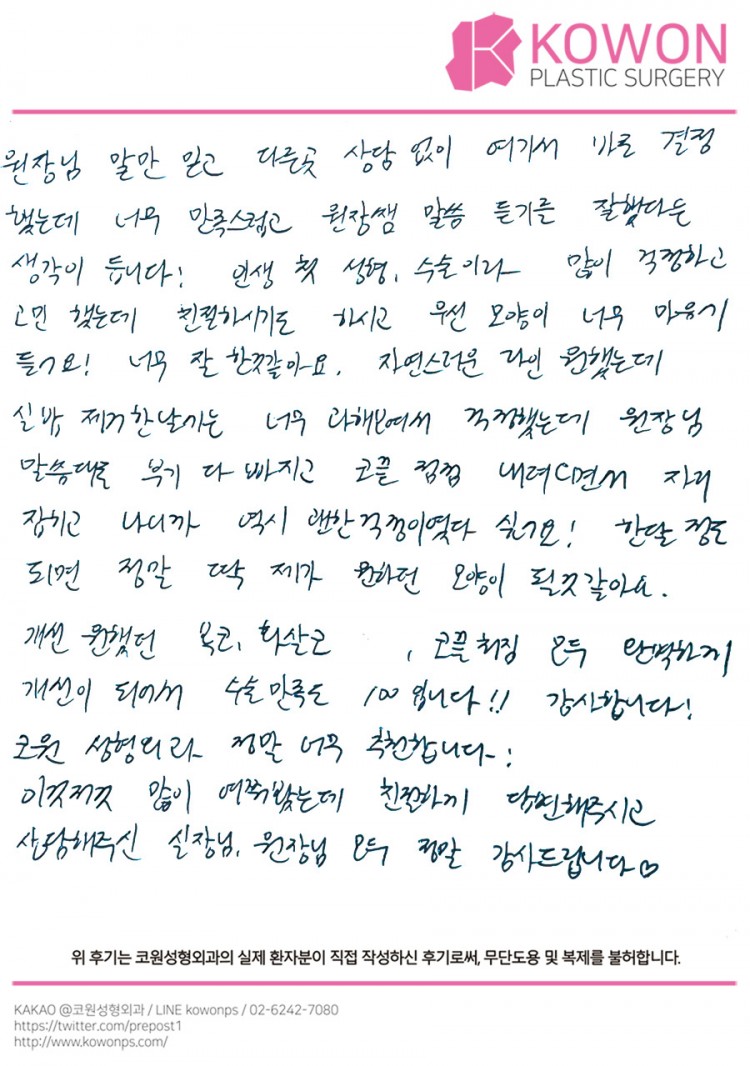 KOWON
PLASTIC SURGERY
원장님 말만 믿고 다른곳 상담 없이 여기서 바로 결정
했는데 너무 만족스럽고 원장쌤 말씀 듣기를 잘했다는
생각이 듭니다! 인생 첫 성형, 수술이라 많이 걱정하고
고민 했는데 친절하시기도 하시고 우선 모양이 너무 마음에
들어요! 너무 잘 한것같아요. 자연스러운 라인 원했는데
실밥 제거한날까는 너무 과해보여서 걱정했는데 원장님
말씀대로 부기 다 빠지고 코끝 점점 내려오면서 자리
잡히고 나니까 역시 괜한걱정이였다 싶어요! 한달 정도
되면 정말 딱 제가 원하던 모양이 될것같아요.
개선 원했던 복코, 화살코 , 코끝 휘짐 모두 완벽하게
개선이 되어서 수술만족도 100입니다!! 감사합니다!
코원 성형외과 정말 너무 추천합니다!
이것저것 많이 여쭤봤는데 친절하게 답변해주시고
상담해주신 실장님, 원장님 모두 정말 감사드립니다♡
위 후기는 코원성형외과의 실제 환자분이 직접 작성하신 후기로써, 무단도용 및 복제를 불허합니다.
KAKAO @코원성형외과 / LINE kowonps / 02-6242-7080
https://twitter.com/prepost1
http://www.kowonps.com/